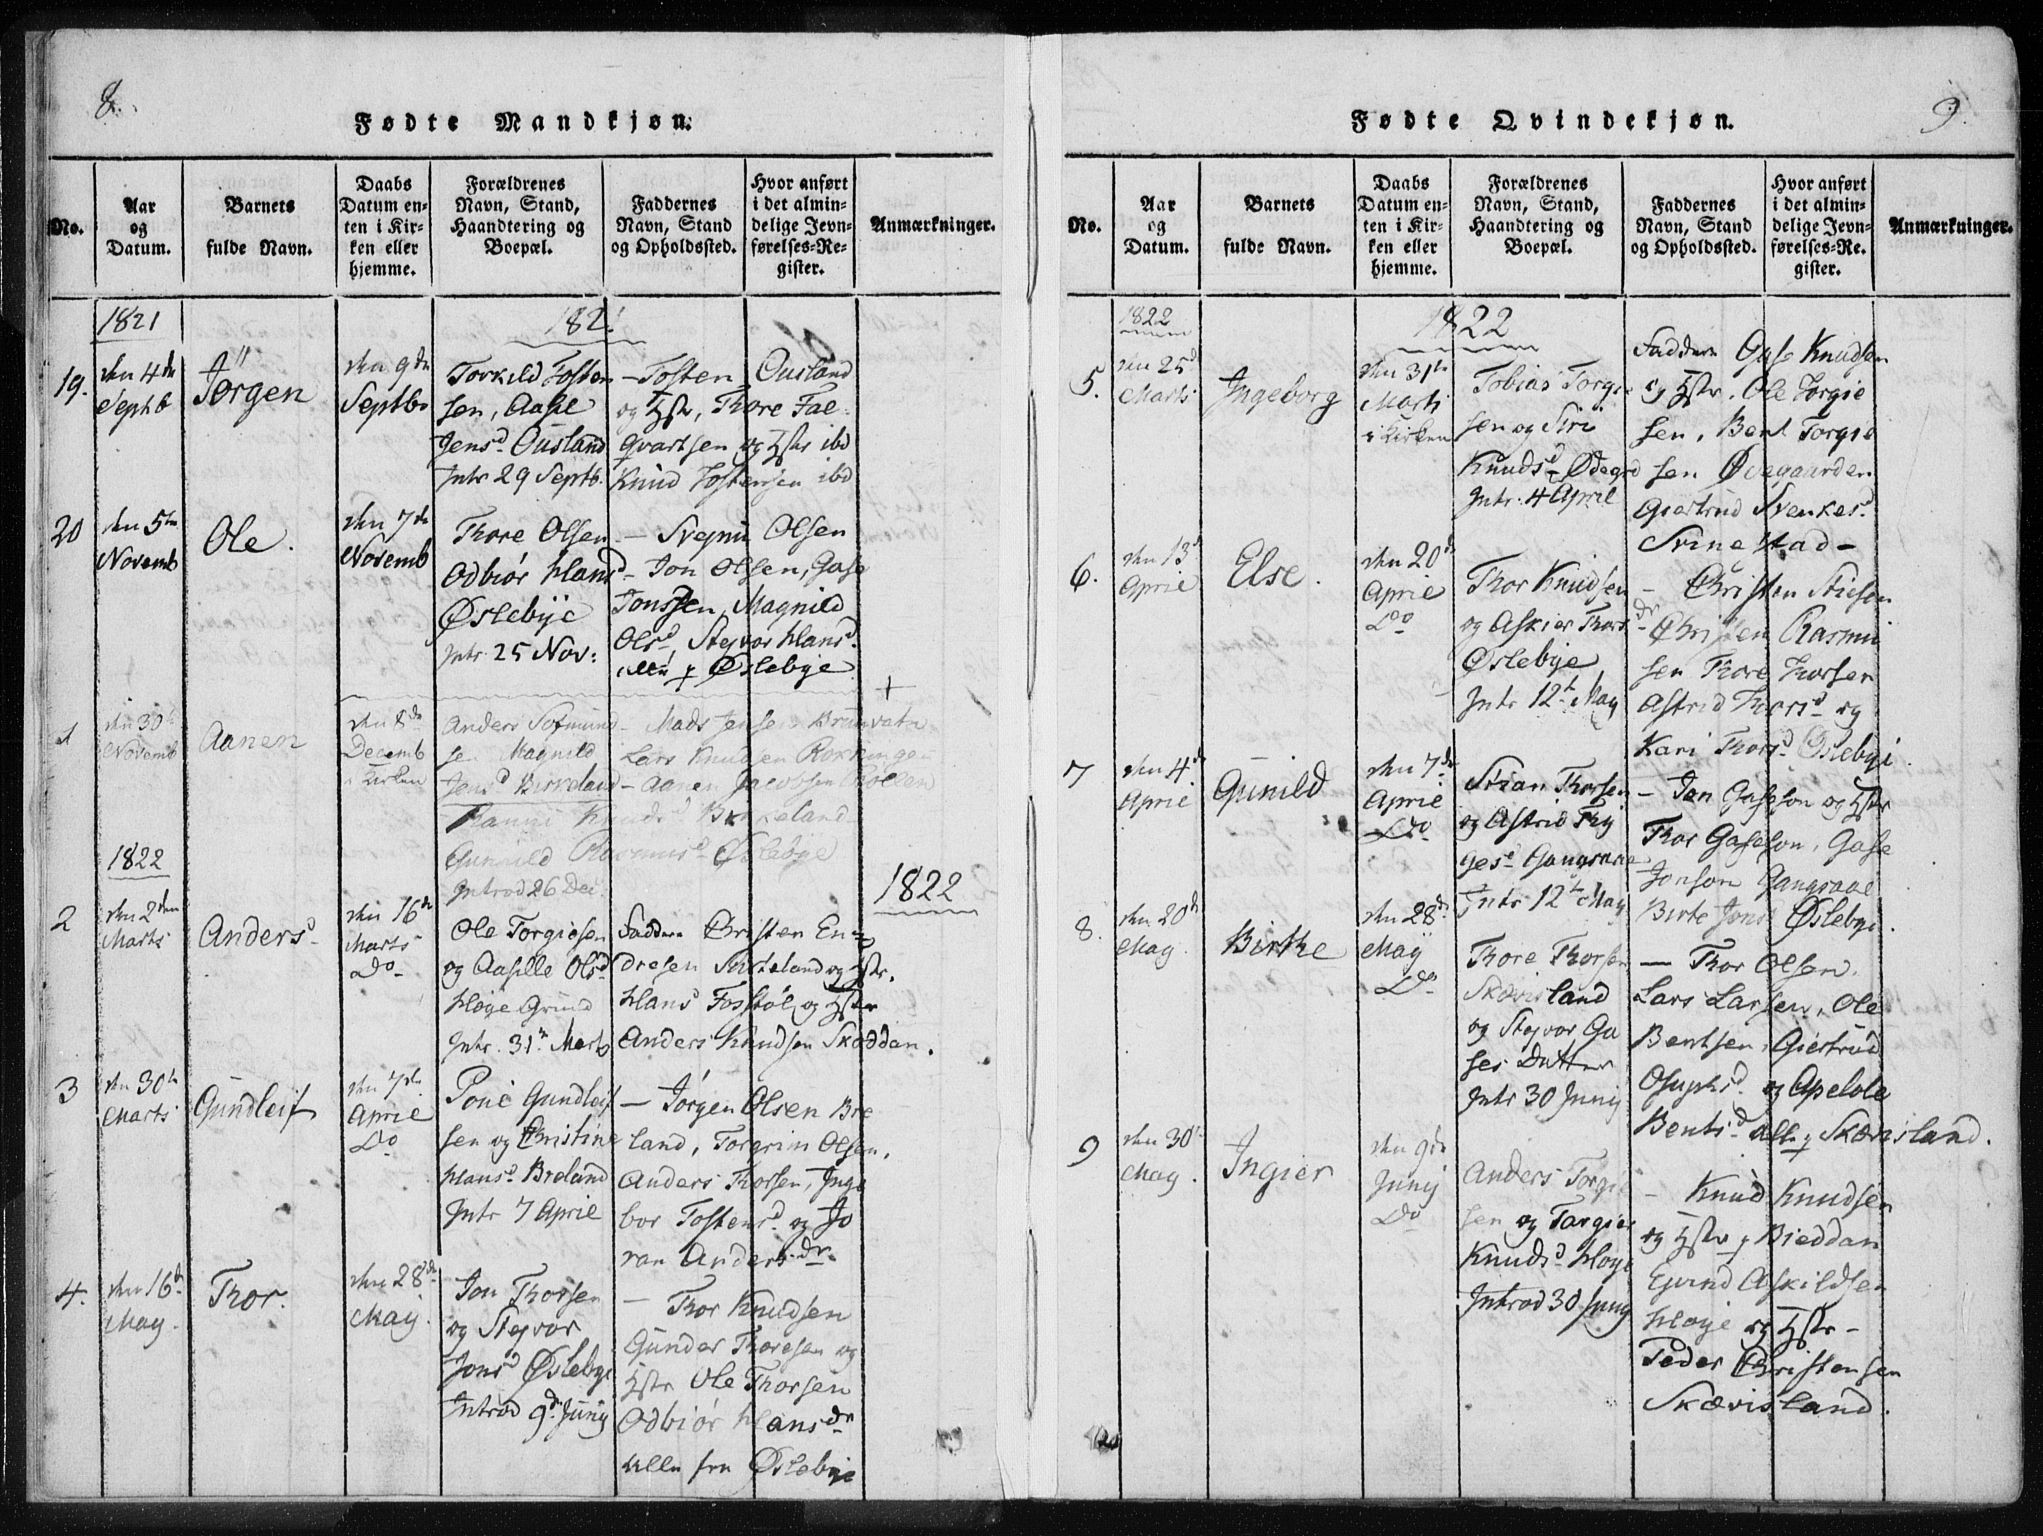 8.
Fødte Mandkjøn.
No.
Aar
og
Datum.
Barnets
fulde Navn.
Daabs
Datum en-
ten i Kir-
ken eller
hjemme.
Forældrenes
Navn, Stand,
Haandtering og
Boepæl.
Faddernes
Navn, Stand
og Opholdssted.
Hvor anført
i det almin-
delige Jevn-
førelses-Re-
gister.
Anmærkninger.
1821
182
19.
den 4de
Septb
Jörgen
den 9de
Septbr
Torkild Tosten
sen, Aase
Jensd Ousland
Intr 29 Septb.
- Tosten Ousland
og Hstr, Thore Fae
qvartsen og Hstr ibd
Knud Tostensen ibd
20
den 5te
Novemb
Ole.
den 7de
Novemb
Thore Olsen
Odbiór Hansd
Øslebÿe
Intr 25 Nov:
- Svejnu Olsen
- Jon Olsen, Gase
Jonssen, Magnild
Olsd, Stejvor Hansd.
Øslebye
1
den 30te
Novemb
Aanen
den 8de
Decemb
i Kirken
Anders Sofmund
sen Magnild
Jensd Birkeland
Introd 26 Dec.
- Mads Jensen Brunvatn
Lars Knudsen Roskinge-
- Aanen Jacobsen
Knudsd Birkeland
Gunnild Rasmusd Øslebye
1822
1822
2
den 2den
Marts
Anders
den 16de
Marts
Do
Ole Torgiesen
og Aasille Olsd
Høye Grund
Intr. 31te Marts
Fadder Christen En-
dresen og Hstr.
Hans Fosstøl og Hstr
Anders Knudsen Skoddan.
3
den 30te
Marts
Gundleif
den 7de
April
Do
Poue Gundleif
sen og Christine
Hansd Breland
Intr 7 April
- Jörgen Olsen Bre
land, Torgrim Olsen,
Anders Thorsen, Inge
bor Tostensd og Jo
ran Anders dr.
4.
den 16de
May.
Thor.
den 28de
May.
Jon Thorsen
og Stejvor
Jonsd Øslebye
Introd 9de Junÿ
- Thor Knudsen
Gunder Thoresen og
Hstr Ole Thorsen
Odbiór Hans dr
alle fra Øslebye
9.
Fødte Qvindekjøn.
No.
Aar
og
Datum.
Barnets
fulde Navn.
Daabs
Datum en-
ten i Kir-
ken eller
hjemme.
Forældrenes
Navn, Stand,
Haandtering og
Boepæl.
Faddernes
Navn, Stand
og Opholdssted.
Hvor anført
i det almin-
delige Jevn-
førelses-Re-
gister.
Anmærkninger.
1822
1822
5.
den 25d
Marts
Ingeborg
den 31te
Marts
i Kirken
Tobias Torgie
sen og Siri
Knudsd Ødegrd
Intr. 4 April
Faddere Gase Knudsen
og Hstr, Ole Torgie
sen, Bent Torgie
sen Øvegaarden
Giertrud Svenkesd
Svinestad -
6.
den 13d
April
Else.
den 20d
April
Do
Thor Knudsen
og Askier Thorsd
Øslebye
Intr 12te May
- Christen Stiesen
Christen Rasmu
sen Thore Thorsen
Astrid Thorsd og
Kari Thorsd Øslebye.
7
den 4de
April
Gunild
den 7de
April
Do
Stian Thorsen
og Astrid Thy
gesd Gangsaae
Intr 12te May
- Jon Gaseson og Hstr
Thor Gaseson, Gase
Jonson Gangsaae
Birte Jonsd Øslebye.
8.
den 20de
May
Birthe
den 28de
May
Do
Thore Thorsen
Skævisland
og Stejvor Ga
ses Datter
Intr 30 Junij
- Thor Olsen.
Lars Larsen, Ole
Bentsen, Giertrud
Osuphsd og Apelole
Bentsd alle Skævisland.
9
den 30te
May.
Ingier
den 9de
Junij
Do
Anders Torgie
sen og Targier
Knudsd Høye
Introd 30 Junij
- Knud Knudsen
og Hstr Bieddan
Ejvind Askildsen
Høije og Hstr -
Peder Christensen
Skævisland.